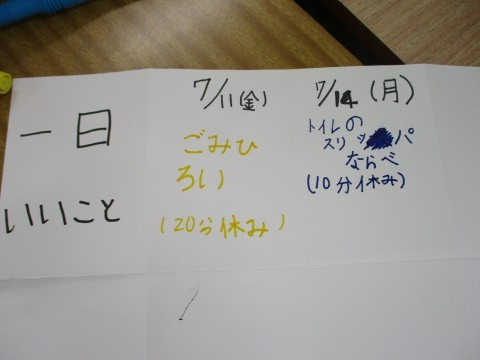 一日
いいこと
7/11(金)
ごみひ
ろい
(20分休み)
7/14(月)
トイレの
スリッパ
ならべ
(10分休み)